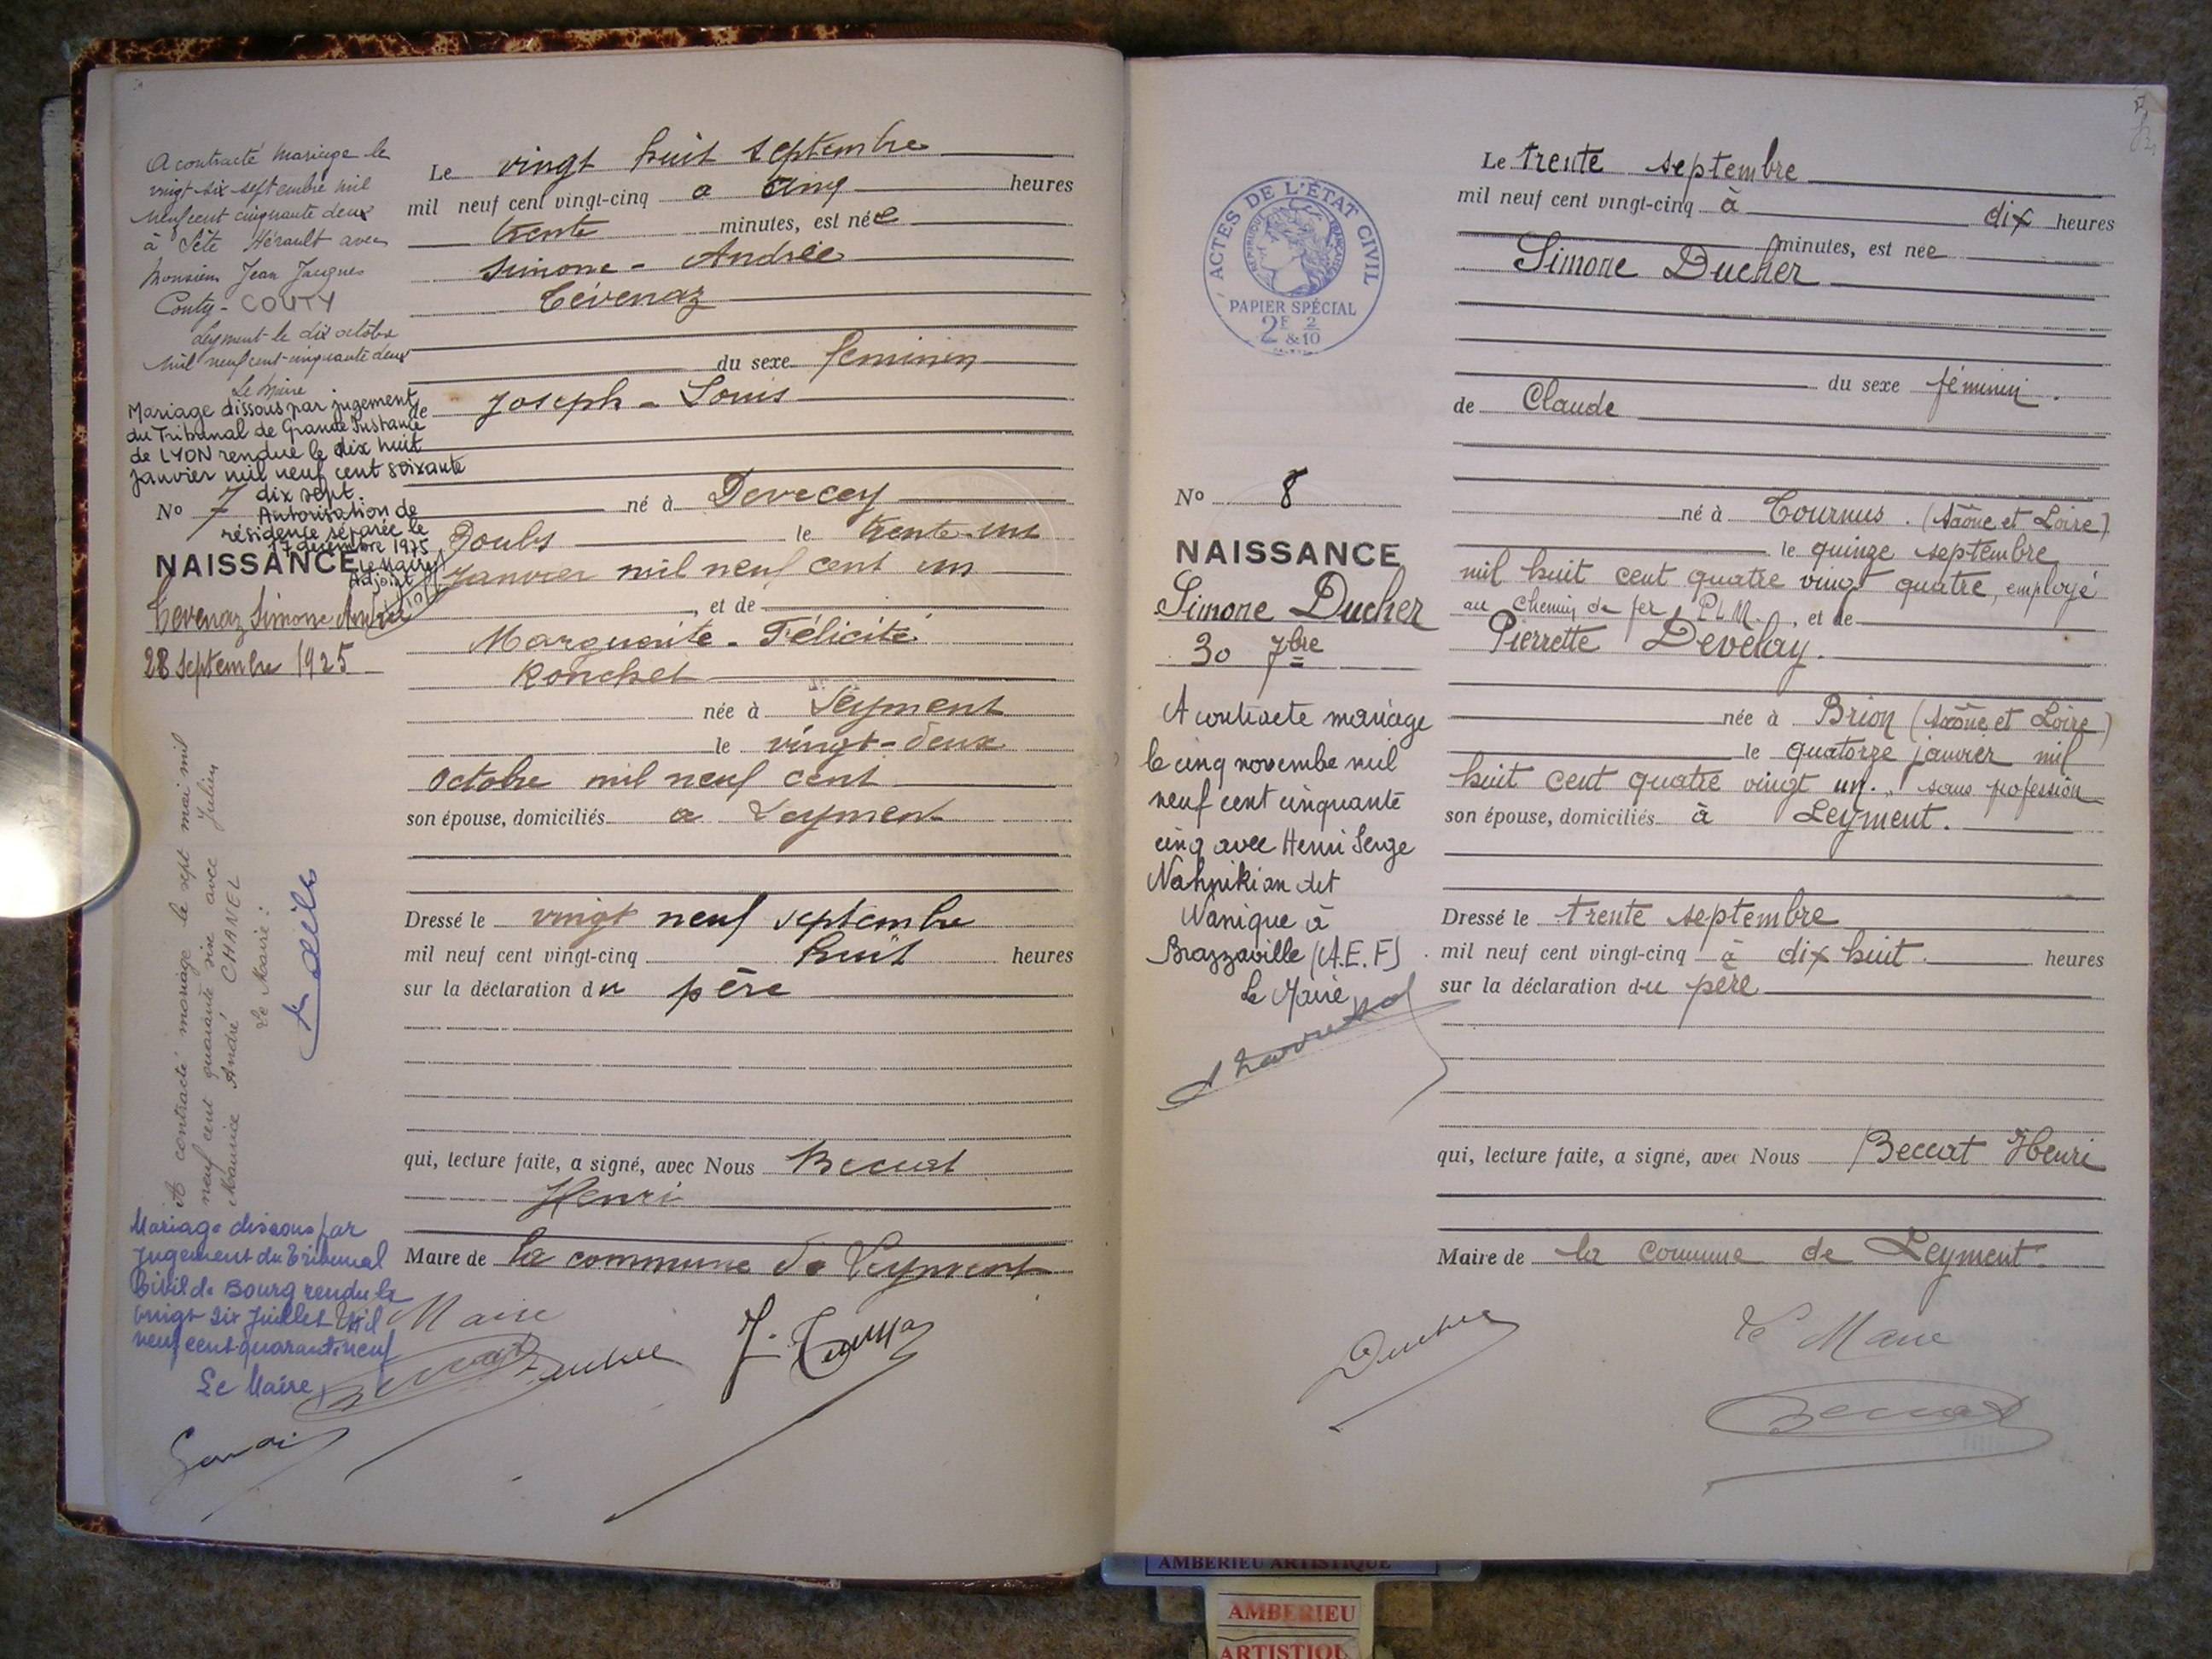 A contracté mariage le
vingt-six septembre mil
neuf cent cinquante deux
à Sète Hérault avec
Monsieur Jean Jacques
Couty - COUTY
Leyment le dix octobre
mil neuf cent cinquante deux
Le Maire
Mariage dissous par jugement
du Tribunal de Grande Instance de
de LYON rendue le dix huit
janvier mil neuf cent soixante
dix sept
Autorisation de
résidence séparée le
17 décembre 1975
Le Maire
Adjoint
No 7
NAISSANCE
Tévenaz Simone Andrée
28 septembre 1925
A contracté mariage le sept mai mil
neuf cent quarante six avec Julien
Maurice André CHANEL
Le Maire :
Mariage dissous par
Jugement du Tribunal
Civil de Bourg rendu le
vingt six Juillet Mil
neuf cent quarante neuf
Le Maire,
Le vingt huit septembre
mil neuf cent vingt-cinq a cinq heures
trente minutes, est née
Simone - Andrée
Tévenaz
du sexe feminin
de Joseph - Louis
né à Devecey
Doubs le trente-un
Janvier mil neuf cent un
, et de
Marguerite - Félicité
Ronchet
née à Leyment
le vingt-deux
octobre mil neuf cent
son épouse, domiciliés a Leyment
Dressé le vingt neuf septembre
mil neuf cent vingt-cinq huit heures
sur la déclaration du père
qui, lecture faite, a signé, avec Nous Beccat
Henri
Maire de la commune de Leyment
Le Maire
ACTES DE L'ÉTAT CIVIL
RÉPUBLIQUE FRANÇAISE
PAPIER SPÉCIAL
2F & 2/10
No 8
NAISSANCE
Simone Ducher
30 7bre
A contracté mariage
le cinq novembre mil
neuf cent cinquante
cinq avec Henri Serge
Nahpikian dit
Nanique à
Brazzaville (A.E.F)
Le Maire
Le trente septembre
mil neuf cent vingt-cinq à dix heures
minutes, est née
Simone Ducher
du sexe féminin.
de Claude
né à Tournus. (Saône et Loire)
le quinze septembre
mil huit cent quatre vingt quatre, employé
au chemin de fer P.L.M. , et de
Pierrette Develay.
née à Brion (Saône et Loire)
le quatorze janvier mil
huit cent quatre vingt un., sans profession
son épouse, domiciliés à Leyment.
Dressé le trente septembre
mil neuf cent vingt-cinq à dix huit heures
sur la déclaration du père
qui, lecture faite, a signé, avec Nous Beccat Henri
Maire de la commune de Leyment.
Ducher
Le Maire
Beccat
AMBERIEU ARTISTIQUE
AMBERIEU
ARTISTIQU